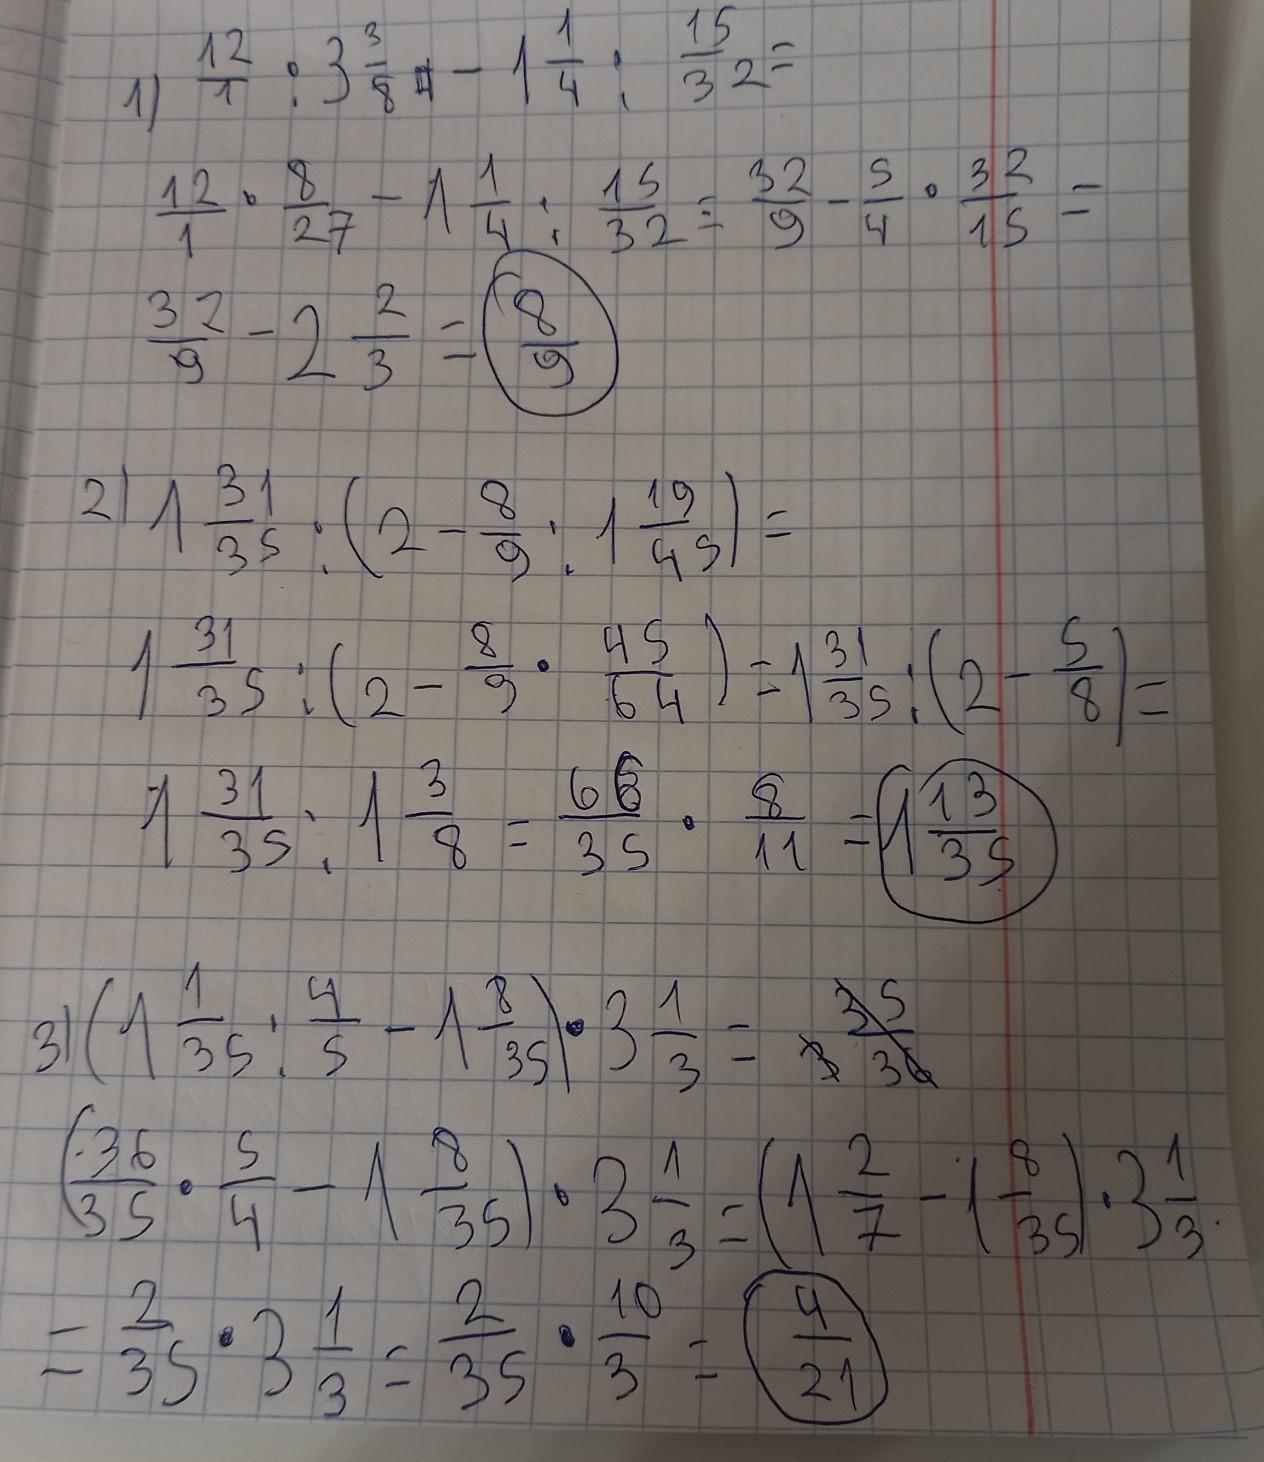 1) 12/1 : 3 3/8 - 1 1/4 : 15/32 =
12/1 · 8/27 - 1 1/4 : 15/32 = 32/9 - 5/4 · 32/15 =
32/9 - 2 2/3 = 8/9
2) 1 31/35 : (2 - 8/9 : 1 19/45) =
1 31/35 : (2 - 8/9 · 45/64) = 1 31/35 : (2 - 5/8) =
1 31/35 : 1 3/8 = 66/35 · 8/11 = 1 13/35
3) (1 1/35 : 4/5 - 1 8/35) · 3 1/3 =
(36/35 · 5/4 - 1 8/35) · 3 1/3 = (1 2/7 - 1 8/35) · 3 1/3
= 2/35 · 3 1/3 = 2/35 · 10/3 = 4/21